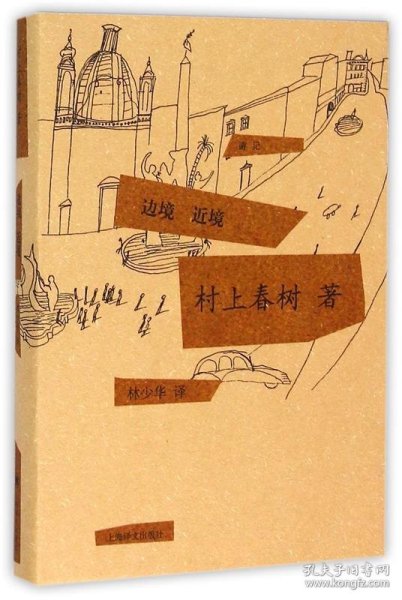 游记
边境 近境
村上春树 著
林少华 译
上海译文出版社
孔夫子旧书网
www.kongfz.com